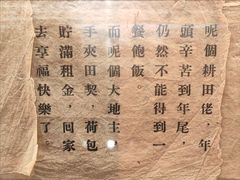 呢個耕田佬，年
頭辛苦到年尾，
仍然不能得到一
餐飽飯。
而呢個大地主，
手夾田契，荷包
貯滿租金，囘家
去享福快樂了。